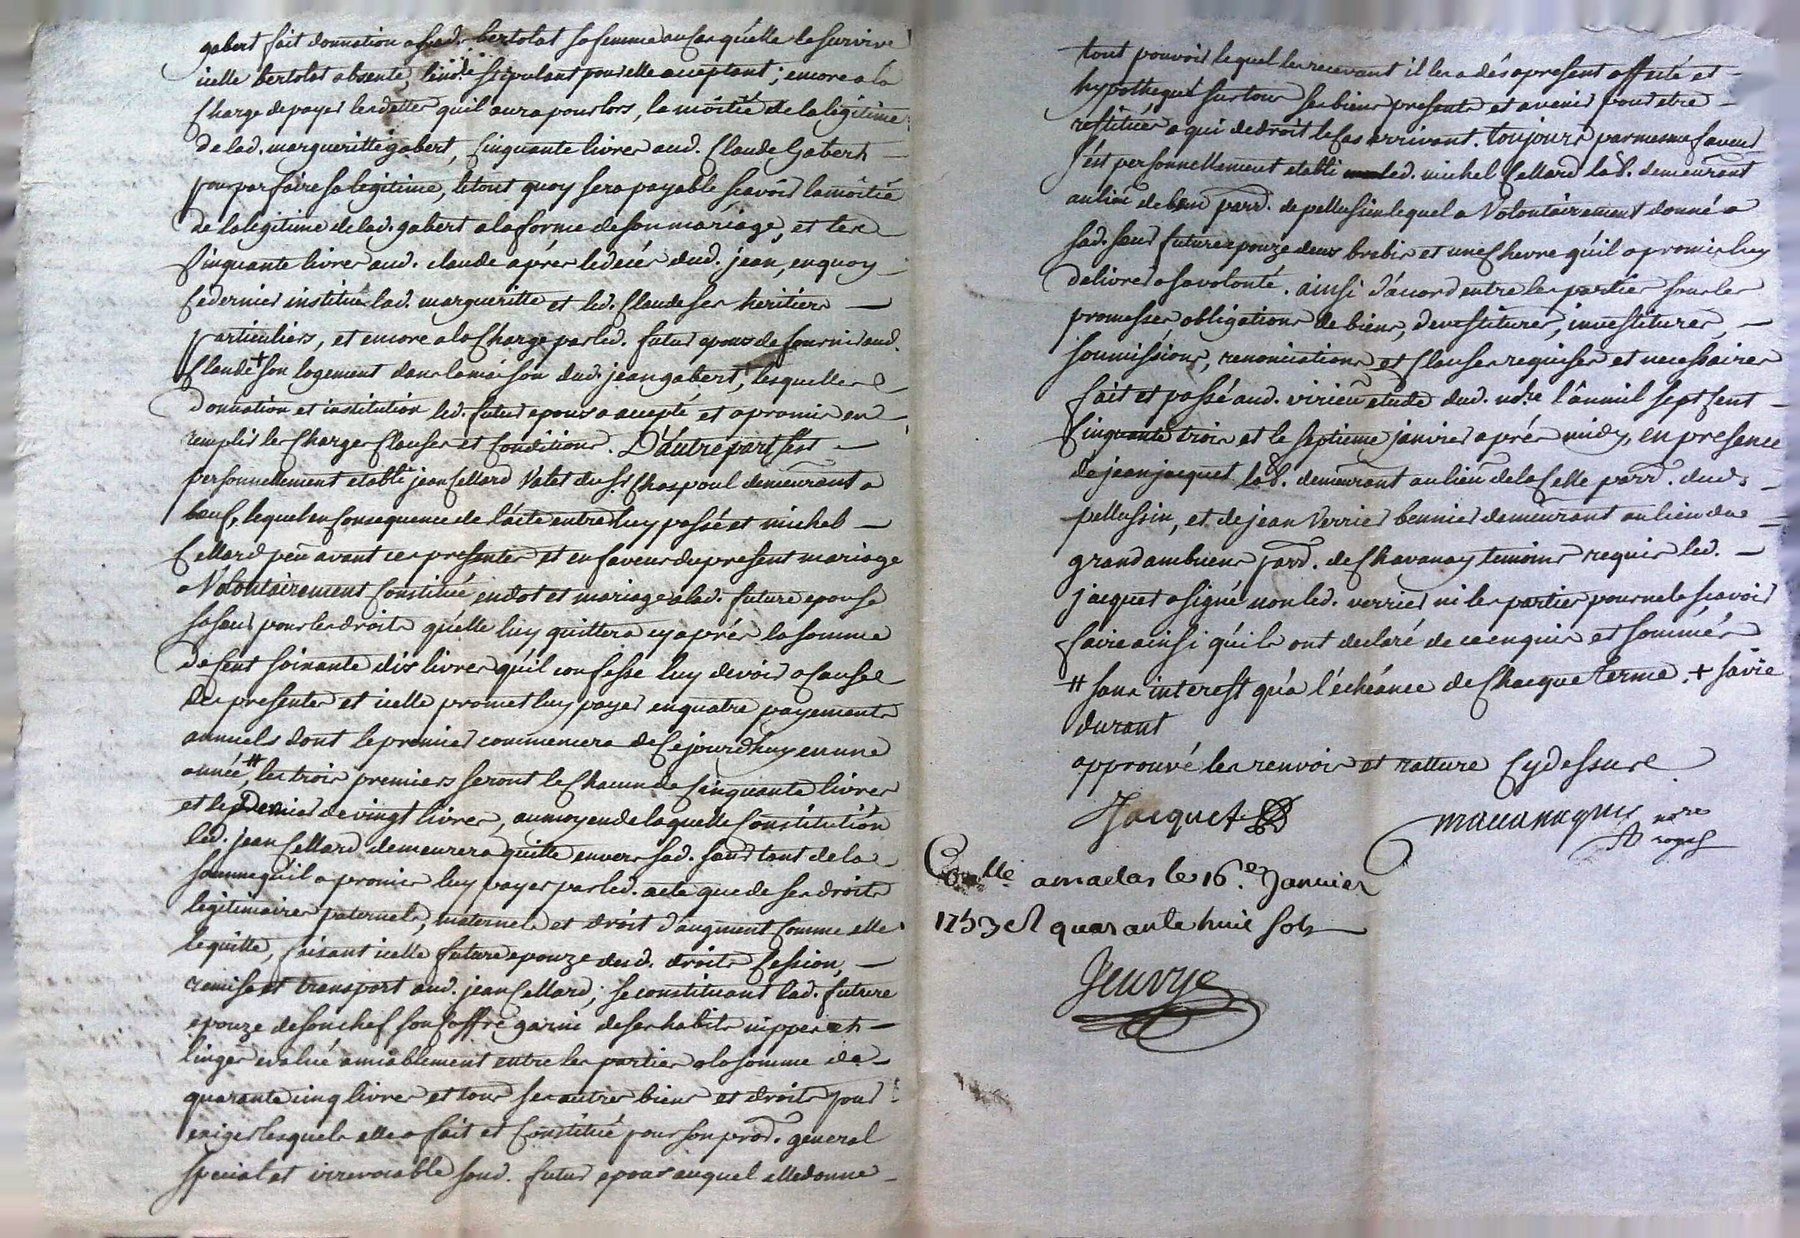 gabert fait donnation a sad. bertolat sa femme au cas qu'elle le survive
icelle bertolat absente, led. stipulant pour elle acceptant; encore a la
charge de payer les dettes qu'il aura pour lors, la moitié de la légitime
de lad. margueritte gabert, cinquante livres aud. Claude Gabert
pour parfaire sa legitime, le tout quoy sera payable scavoir la moitié
de la legitime de lad. gabert a la forme de son mariage, et les
cinquante livres aud. claude aprés le décés dud. jean, en quoy
ce dernier institue lad. margueritte et led. Claude ses heritiers
particuliers, et encore a la Charge par led. futur epoux de fournir aud.
Claude + son logement dans la maison dud. jean gabert, lesquelles
donnation et institution led. futur epoux a accepté et a promis en
remplir les charges clauses et Conditions. D'autre part s'est
personnellement etabli jean Cellard Valet du Sr. Chaspoul demeurant a
bouf, lequel en Consequence de l'acte entre luy passé et michel
Cellard peu avant ces presentes et en faveur du present mariage
a Volontairement Constitué en dot et mariage a lad. future epouse
sa sœur pour les droits qu'elle luy quittera cy aprés la somme
de Cent soixante dix livres qu'il confesse luy devoir a cause
des presentes et icelle promet luy payer en quatre payements
annuels dont le premier commencera de Ce jourd'huy en une
année #, les trois premiers seront le Chacun de Cinquante livres
et le Dernier de vingt livres, au moyen de laquelle Constitution
led. jean Cellard demeurera quitte envers sad. sœur tant de la
somme qu'il a promis luy payer par led. acte que de ses droits
legitimaires paternels, maternels et droit d'augment comme elle
le quitte, faisant icelle future epouze desd. droits Cession,
remise et transport aud. jean Cellard; se constituant lad. future
epouze de son chef son Coffre garni de ses habits nippes et
linges evalué amiablement entre les parties a la somme de
quarante cinq livres et tous ses autres biens et droits pour
exiger lesquels elle a fait et Constitué pour son procr. general
special et irrevocable sond. futur epoux auquel elle donne
tout pouvoir lequel les recevant il les a dés a present affecté et
hypothequé sur tous ses biens presents et avenir pour etre
restitués a qui de droit le Cas arrivant. toujours par mesme faveur
s'est personnellement etabli led. michel Cellard lab. demeurant
au lieu de parr. de pellussin lequel a Volontairement donné a
sad. sœur future epouze deux brebis et une Chevre qu'il a promis luy
delivrer a sa volonté. ainsi d'acord entre les parties sous les
promesses, obligations de biens, devestitures, investitures,
soumissions, renonciations et Clauses requises et necessaires
fait et passé aud. virieu etude dud. nore. l'an mil sept Cent
Cinquante trois et le septieme janvier aprés midy, en presence
de jean jacquet lab. demeurant au lieu de la Celle parr. dud.
pellussin, et de jean Verrier bennier demeurant au lieu du
grand ambuens parr. de Chavanay temoins requis led.
jacquet a signé non led. verrier ni les parties pour ne le scavoir
faire ainsi qu'ils ont declaré de ce enquis et sommés
# sans interest qu'a l'échéance de Chacque terme. + sa vie
durant
approuvé les renvois et ratture Cy dessus
Jacquet
nore
royal
Conllé a maclas le 16.e Janvier
1753 R quarante huit sols
Jeuvye